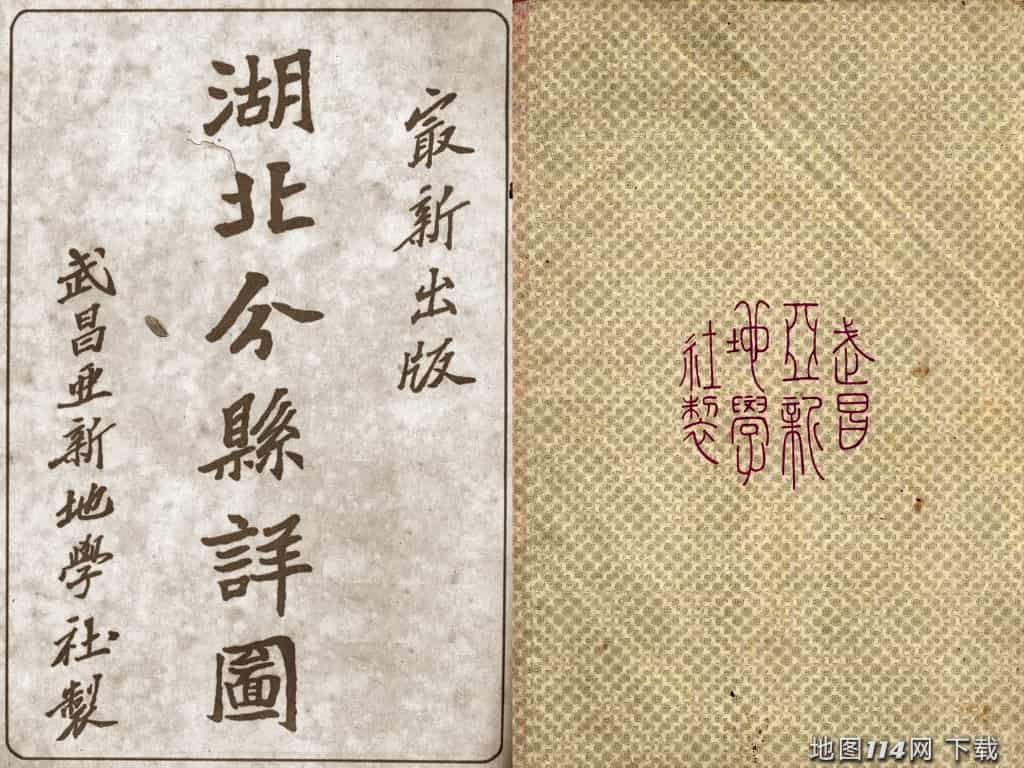 最新出版
湖北分縣詳圖
武昌亞新地學社製
武昌
亞新
地學
社製
地图114网 下载